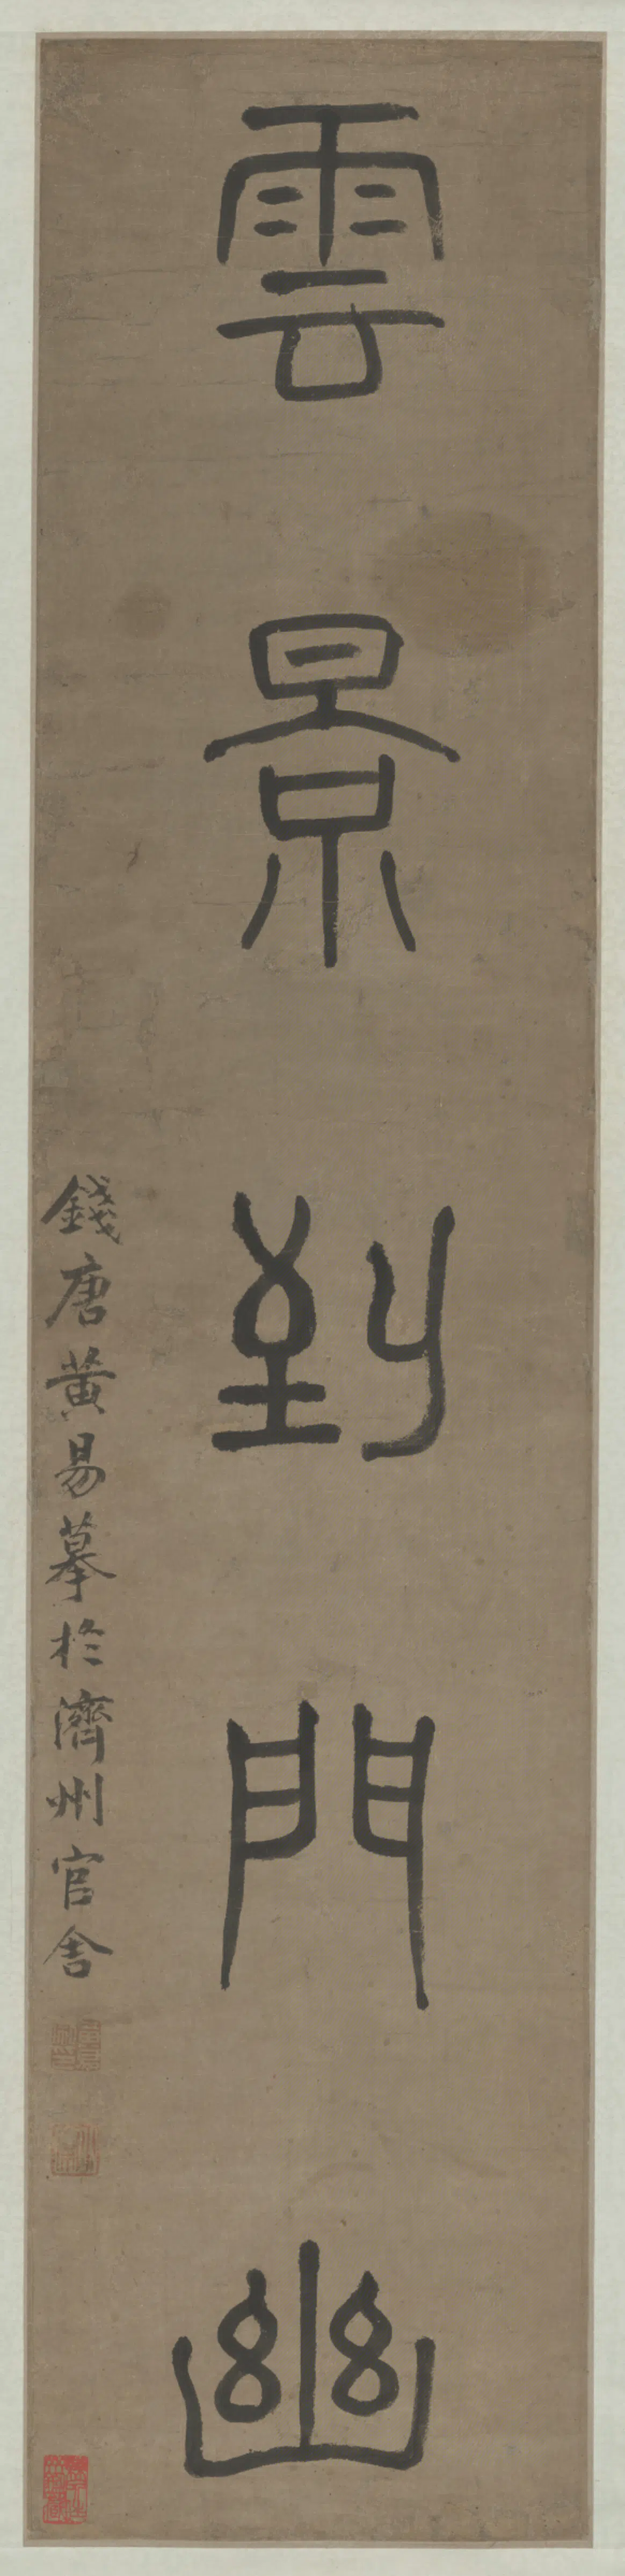 雲景到門幽
錢唐黃易摹於濟州官舍